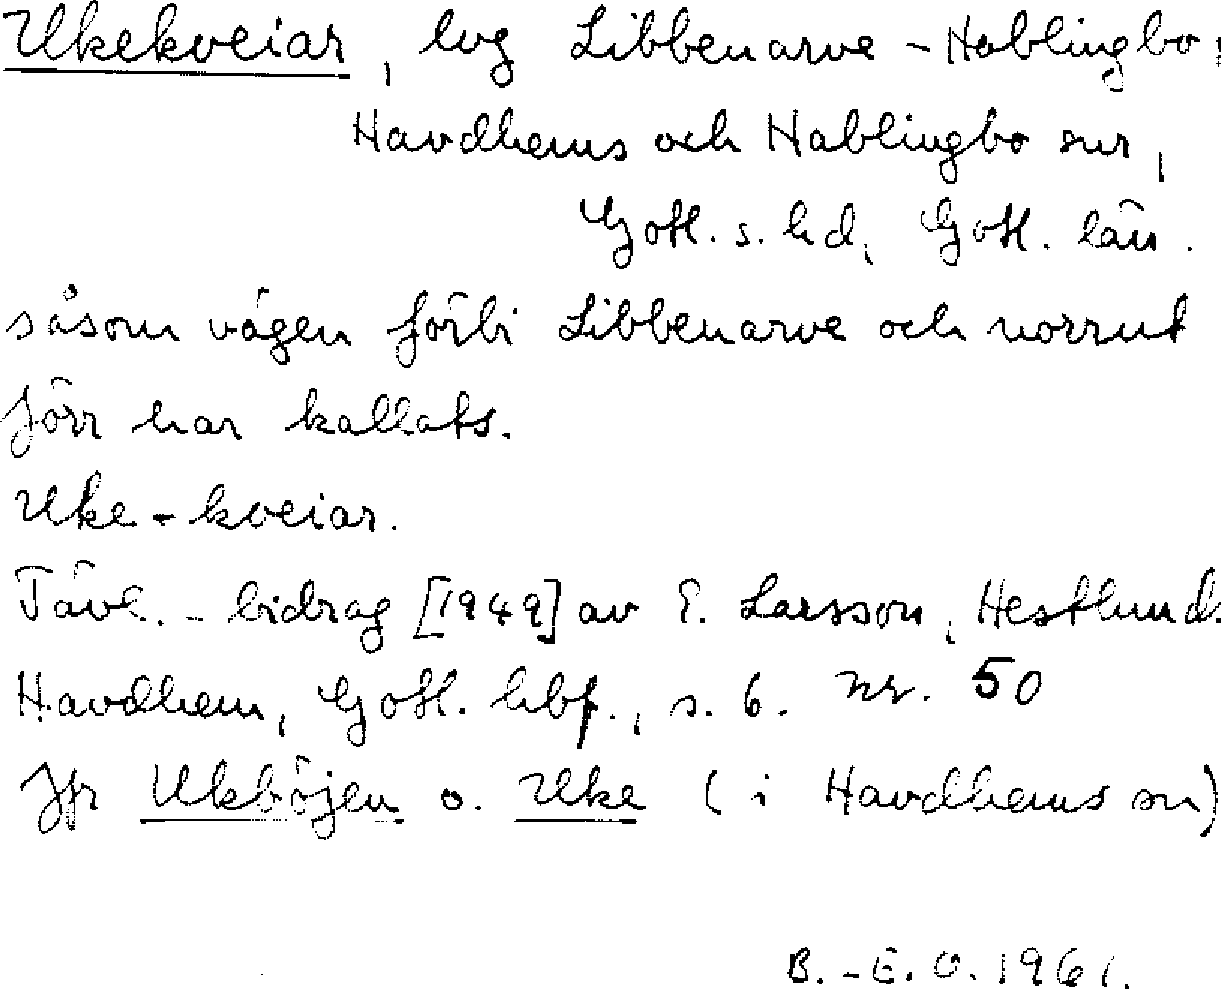 Ukekveiar, lvg Libbenarve - Hablingbo,
Havdhems och Hablingbo snr,
Gotl. s. hd, Gotl. län.
såsom vägen förbi Libbenarve och norrut
förr har kallats.
Uke - kveiar.
Tävl. - bidrag [1949] av E. Larsson, Hestlunds
Havdhem, Gotl. hbf., s. 6. nr. 50
Jfr Ukböjen o. Uke (i Havdhems sn)
B. - E. O. 1961.